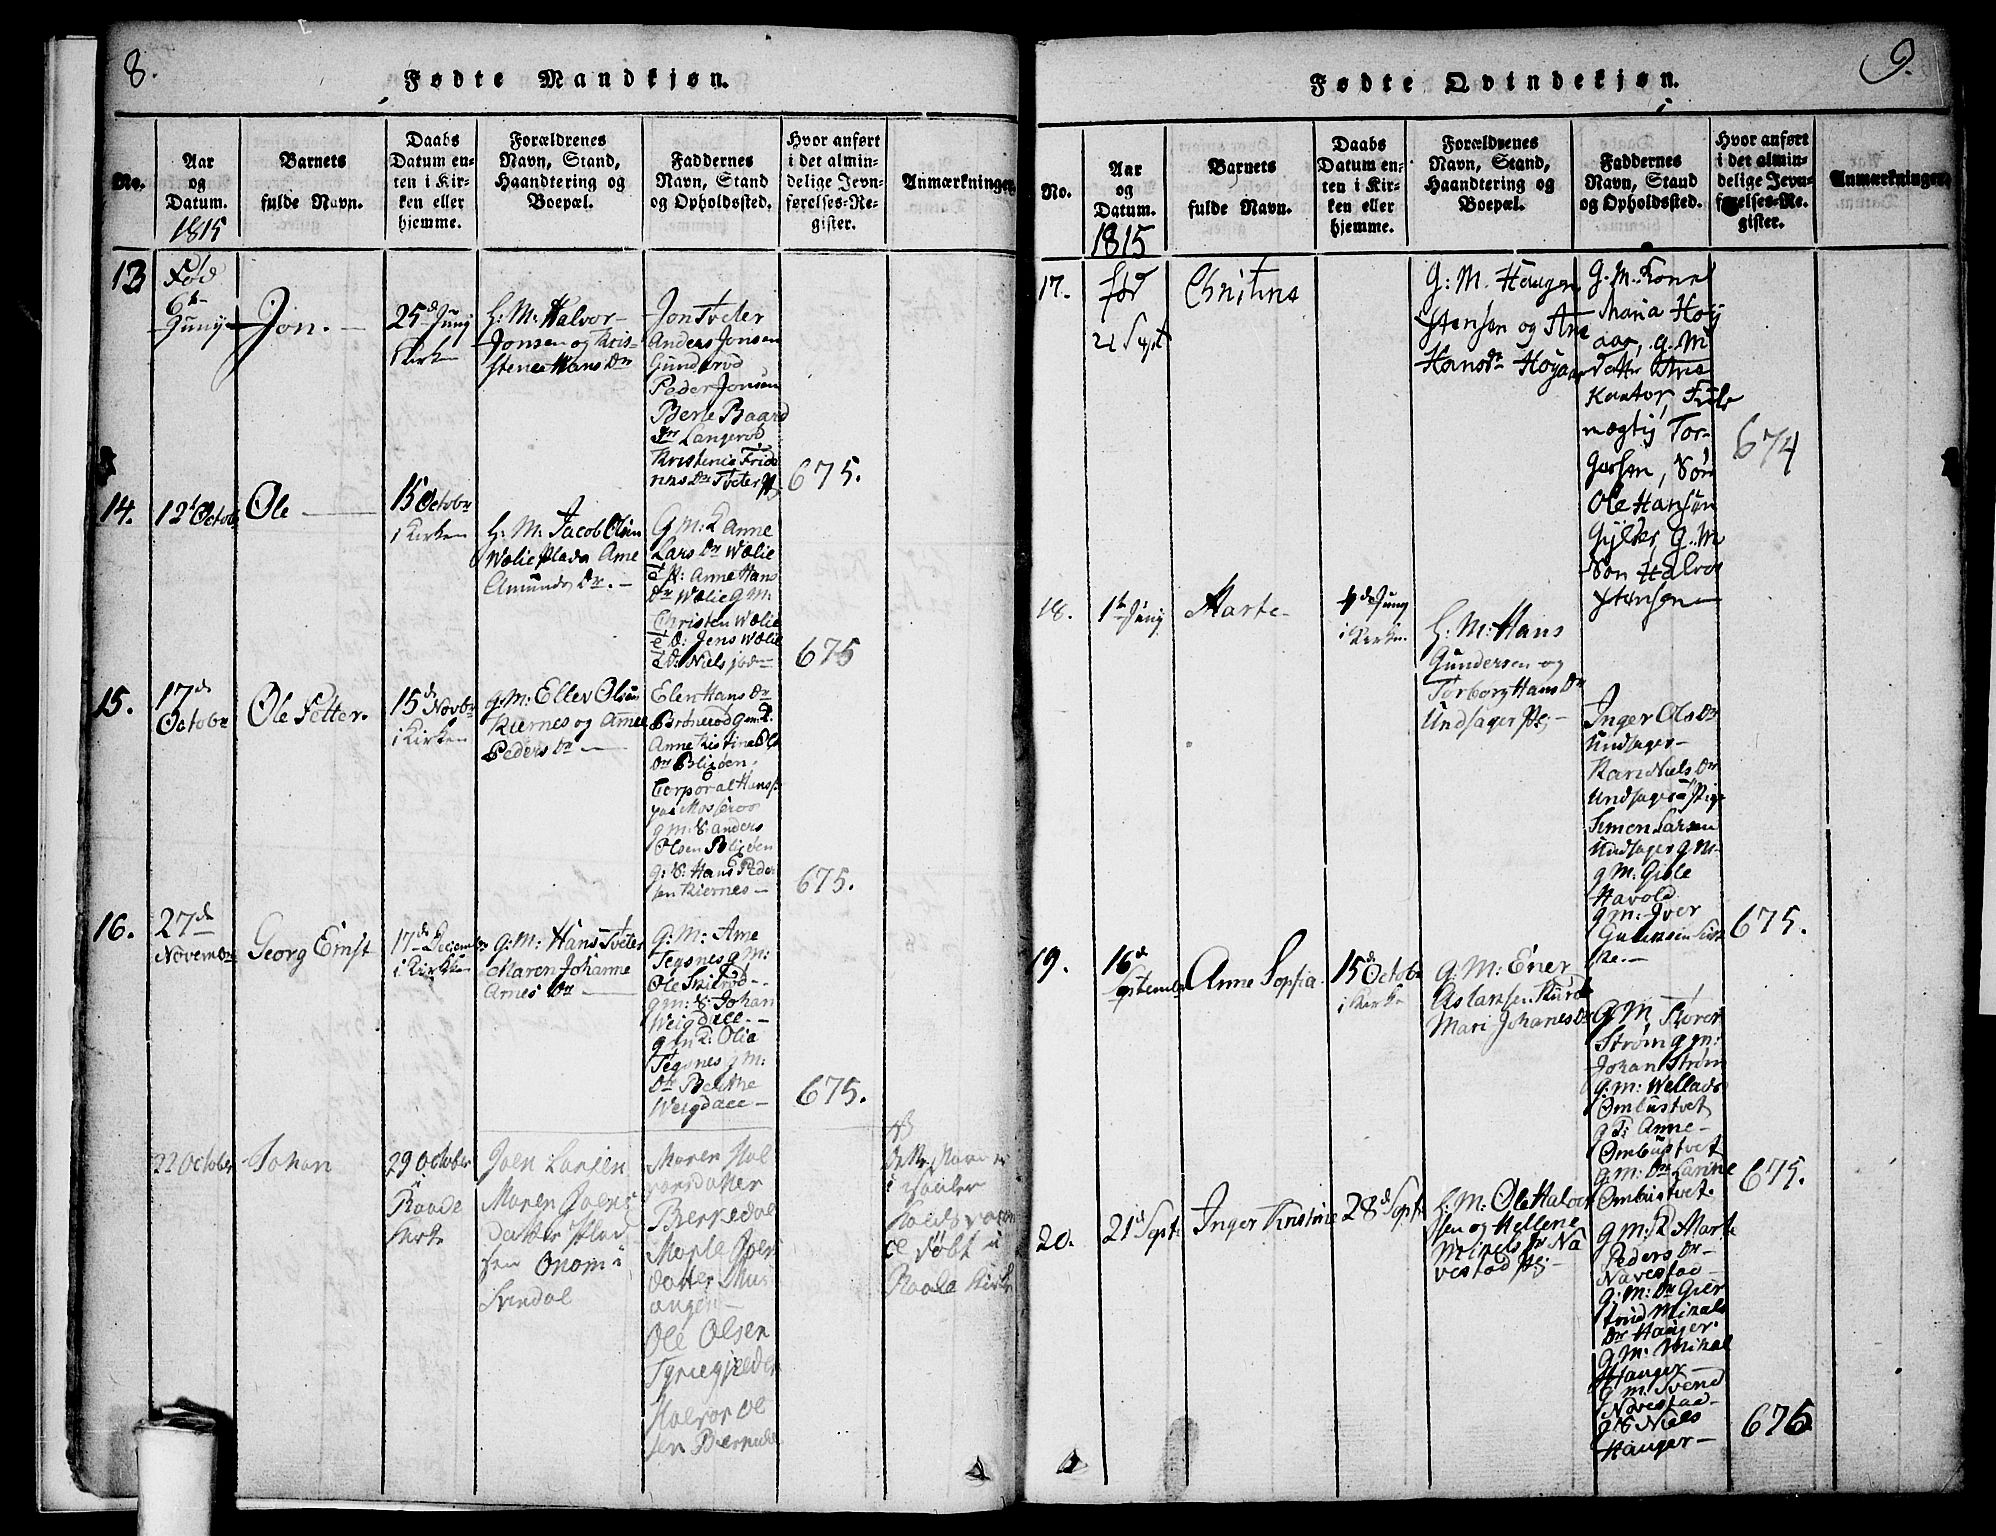 8.
Fødte Mandkjøn.
No.
Aar
og
Datum.
1815
Barnets
fulde Navn.
Daabs
Datum en-
ten i Kir-
ken eller
hjemme.
Forældrenes
Navn, Stand,
Haandtering og
Boepæl.
Faddernes
Navn, Stand
og Opholdssted.
Hvor anført
i det almin-
delige Jevn-
førelses-Re-
gister.
Anmærkninger.
13
Fød
6te
Junij
Jon.
25de Junij
Kirken
H: M: Halvor
Jonsen og Kris-
stence Hans Dr
Jon Tveter
Anders Jonsen
Gunderød
Peder Jonsen
Berte Baard
Dr Langerød
Kristenie Frid
Tveter
675.
14.
12t Octob
Ole
15 Octobr
i Kirken
H: M: Jacob Olsen
Wælie Ane
Amunds Dr.
G: M: K Anne
Lars Dr Wælie
Anne Hans
Dr Wælie G M:
Christen Wælie
Jens Wælie
Niels
675
15.
17de
Octobr
Ole Petter.
15de Novbr
i Kirken
g: M: Ellev Olsen
Kiernes og Anne
Peders Dr
Elen Hans Dr
Brønerød g m: K.
Anne Kistine Ols
Dr Blixøen.
Corporal Hans
g m: S: anders
Olsen Blixøen
g: S: Hans Peder
sen Kiernes
675.
16.
27de
Novembr
Georg Ernst
17de Decembr
i Kirken
g: M: Hans Tveter
Maren Johanne
Arnes Dr
g: M: Ane
Tegsnes g M:
Ole Skilrød
g m: S: Johan
Weigdall
g m K: Olia
Tegsnes g M:
Dr Berthe
Weigdall
675.
22 October
Johan
29 October
i
Raade
Kirke
Joen Larsen
Maren Joens
datter
Onom i
Svindal
Maren Hal
vorsdatter
Berkedal
Marte Joens
datter
Ole Olsen
Halvor Ol
sen
NB
dette Navn er
i Vaaler
døbt i
Raade Kirke
9.
Fødte Qvindekjøn.
No.
Aar
og
Datum.
1815
Barnets
fulde Navn.
Daabs
Datum en-
ten i Kir-
ken eller
hjemme.
Forældrenes
Navn, Stand,
Haandtering og
Boepæl.
Faddernes
Navn, Stand
og Opholdssted.
Hvor anført
i det almin-
delige Jevn-
førelses-Re-
gister.
Anmærkninger.
17.
fød
21 Sept
Christine
G: M. Haagen
Stensen og Ane
Hansdr Høyaas
G. M. Kone
Maria Høy
aas, G. M
Datter Ane
Kantor,
mægtig Tor-
gersen, Søn
Ole Hansøn
Gylder, G. M
Søn Halvor
Stensen
674
18.
1te Junij
Marte
4de Junij
i Kirken
H: M: Hans
Gundersen og
Torborg Hans Dr
Undsager
Inger Ols Dr
Undsager
Kari Niels Dr
Undsager
Simon Larsen
Undsager g M
g M. Gisle
Havold
g m: Iver
675.
19.
16de
September
Anne Sopfia.
15de Octobr
i Kirke
g: M: Ener
Aslaksen
Mari Johanes Dr
g M
Strøm g m:
Johan Strøm
g: m: Wellads
Ombustvet
g K: Anne
Ombustvet
g m: Dr Karine
Ombustvet
675.
20.
21de Sept
Inger Kristine
28de Sept
H: M: Ole Halvor
sen og Hellene
Mikels Dr Na
vestad
g m: K Marte
Peders Dr
Navestad
g: M: Dr Gier
trud Mikels
Dr Hauger.
g M: Mikal
Hauger
g m: Svend
Navestad
g S Niels
Hauger
675